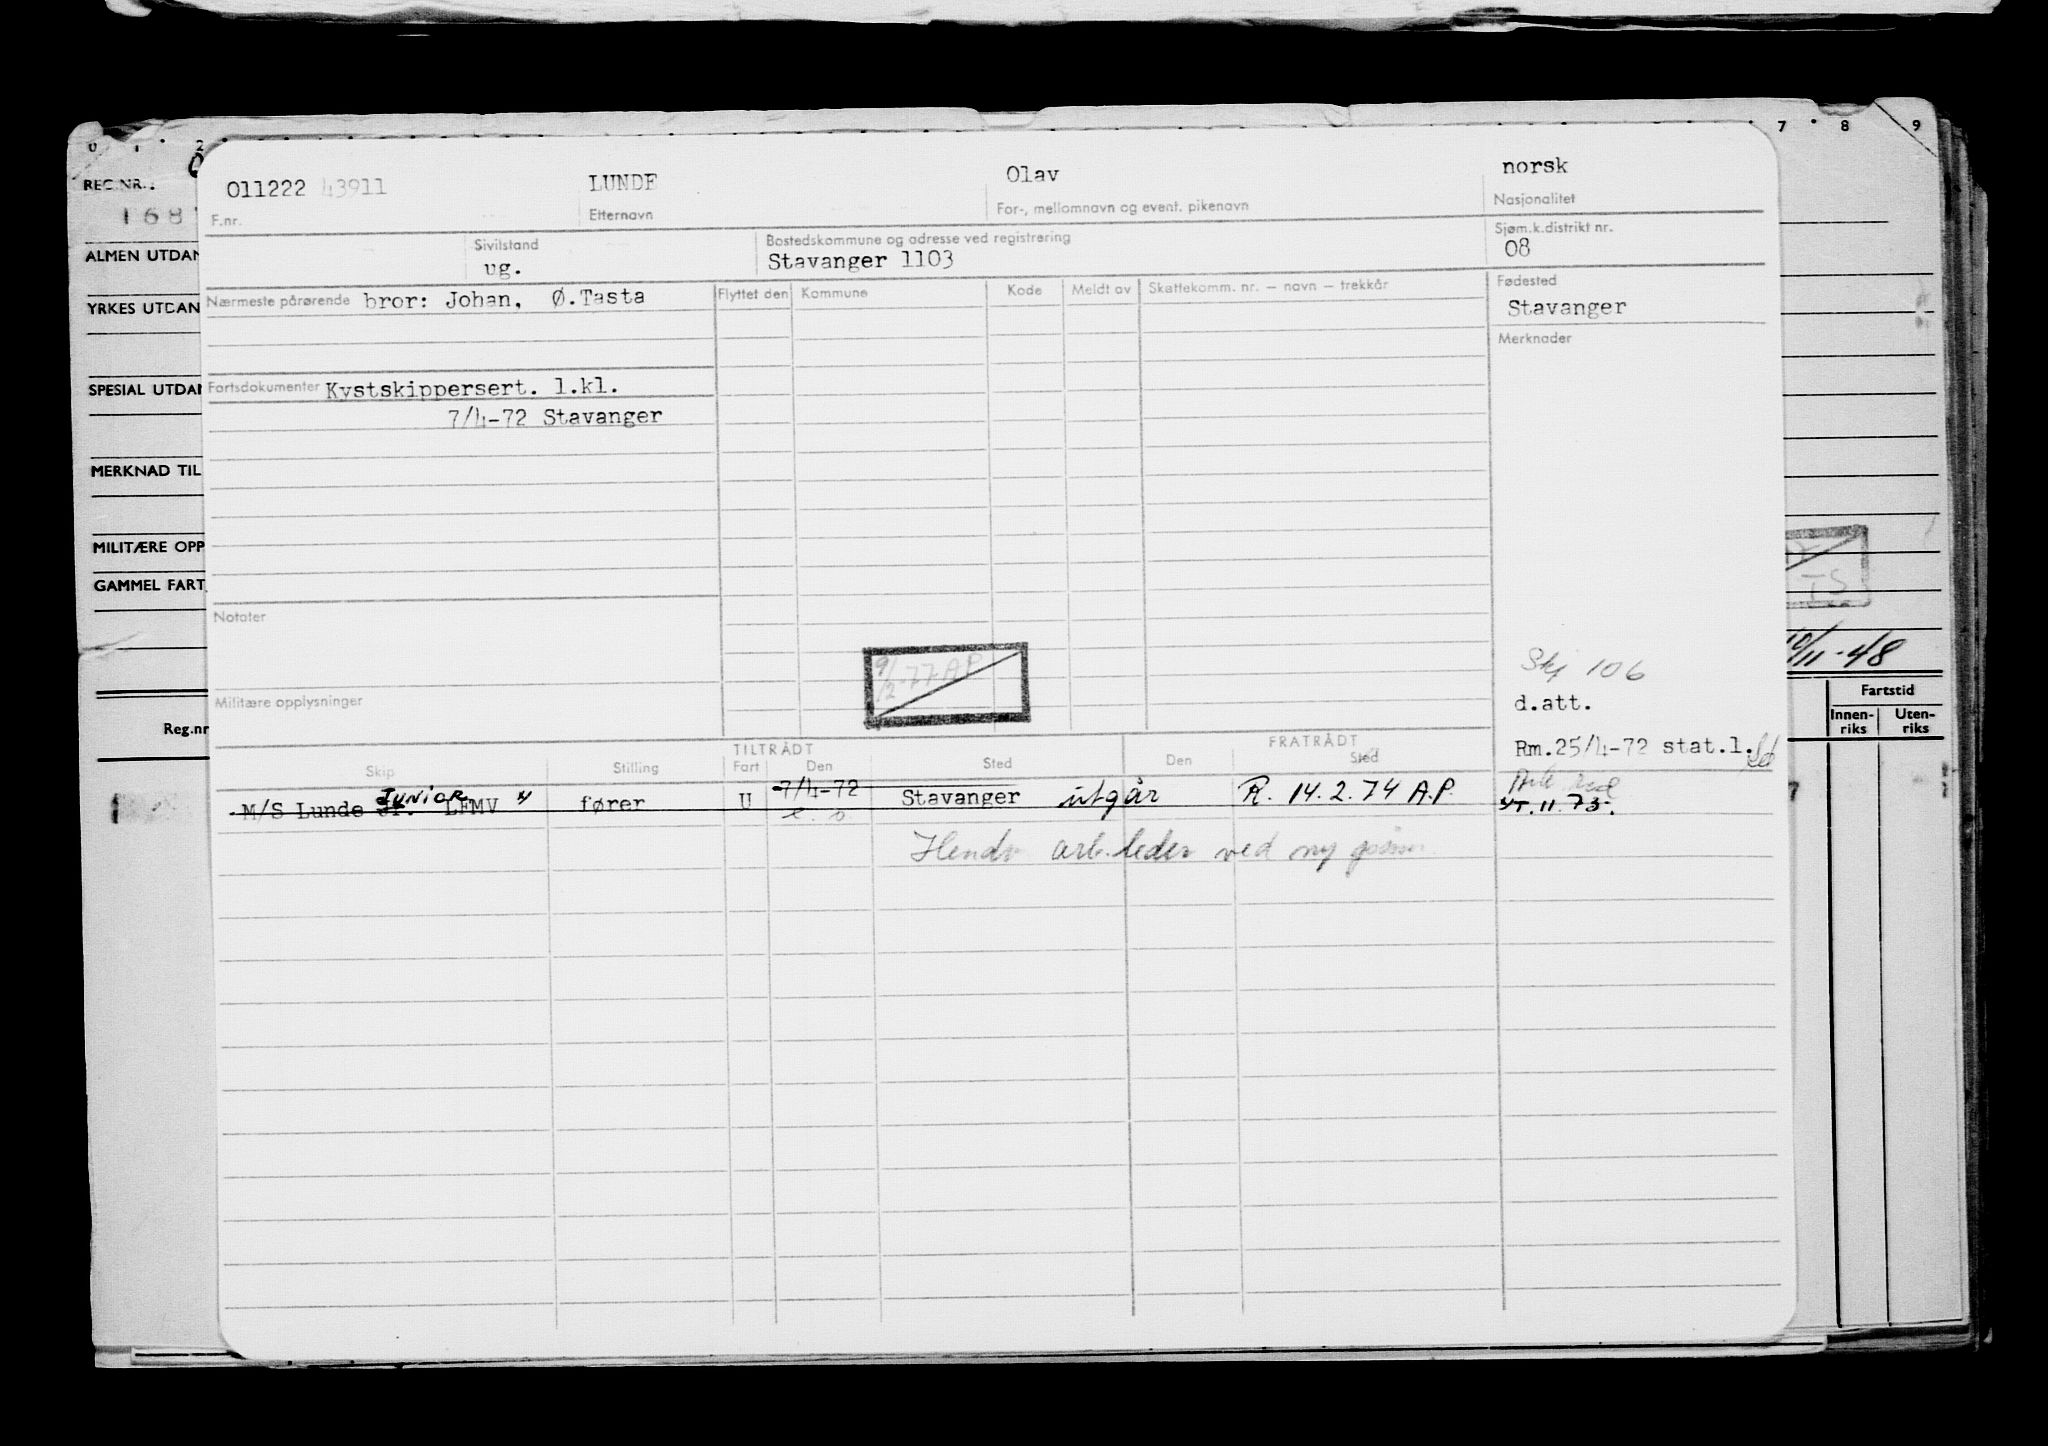 0 1 2 7 8 9
REG.NR.:
168
011222 43911 LUNDE Olav norsk
F.nr. Etternavn For-, mellomnavn og event. pikenavn Nasjonalitet
ALMEN UTDAN
Sivilstand Bostedskommune og adresse ved registrering Sjøm.k.distrikt nr.
ug. Stavanger 1103 08
YRKES UTDAN
Nærmeste pårørende bror: Johan, Ø.Tasta Flyttet den Kommune Kode Meldt av Skattekomm. nr. – navn – trekkår Fødested
Stavanger
Merknader
SPESIAL UTDAN
Fartsdokumenter Kystskippersert. 1.kl.
7/4-72 Stavanger
MERKNAD TIL
MILITÆRE OPP
GAMMEL FART
TS
Notater
10/11-48
9/2-77 A.P
Skj 106
Militære opplysninger
d.att.
Fartstid
Innen-riks Uten-riks
Reg.nr
Rm.25/4-72 stat.l.
TILTRÅDT FRATRÅDT
Skip Stilling Fart Den Sted Den Sted
M/S Lunde Jr. JUNIOR LFMV " fører U 7/4-72 Stavanger utgår R. 14.2.74 A.P.
ST. 11.73.
arb.leder ved ny